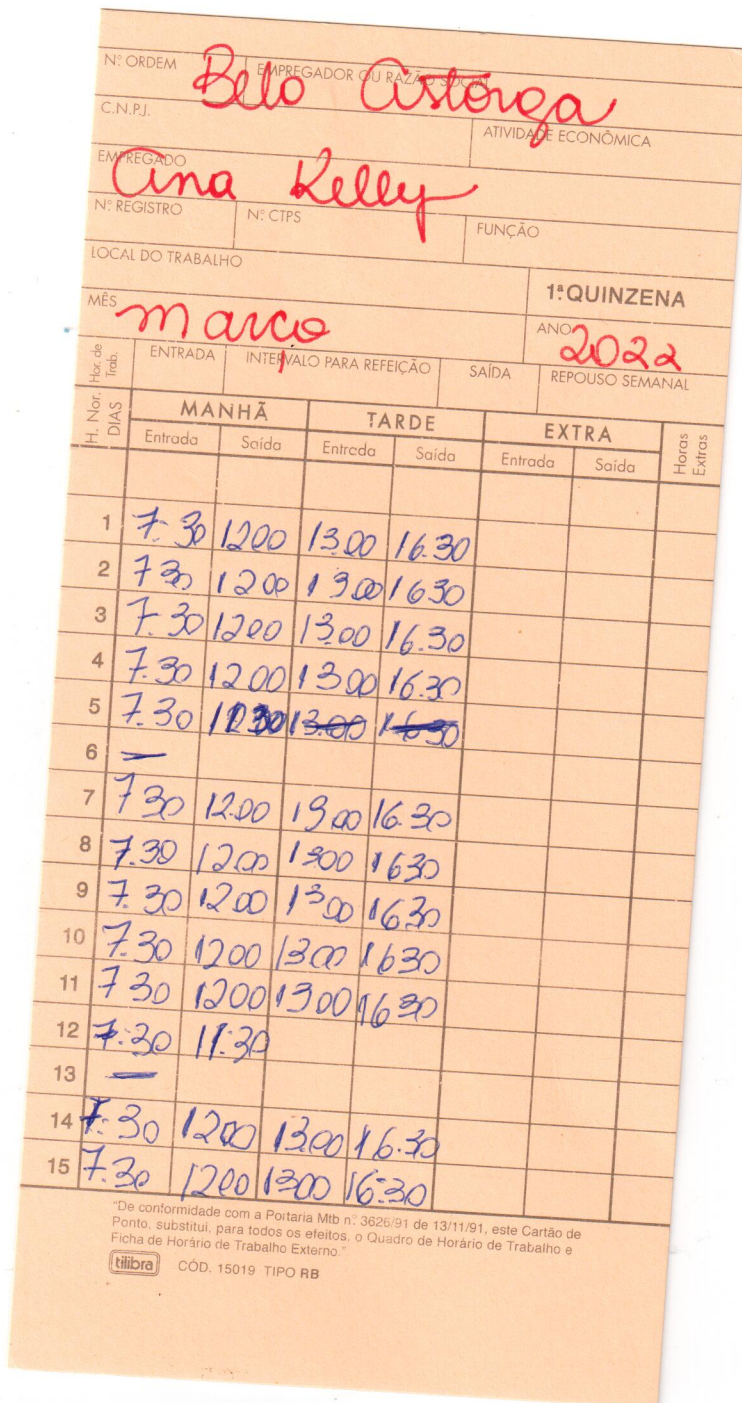 Nº ORDEM EMPREGADOR OU RAZÃO SOCIAL
Belo Astorga
C.N.P.J. ATIVIDADE ECONÔMICA
EMPREGADO
Ana Kelly
Nº REGISTRO Nº CTPS FUNÇÃO
LOCAL DO TRABALHO
1ª QUINZENA
MÊS março ANO 2022
Hor. de Trab. ENTRADA INTERVALO PARA REFEIÇÃO SAÍDA REPOUSO SEMANAL
H. Nor. DIAS MANHÃ TARDE EXTRA Horas Extras
Entrada Saída Entrada Saída Entrada Saída
1 7:30 1200 13.00 16.30
2 7 30 1200 13 00 1630
3 7.30 1200 13.00 16.30
4 7.30 12.00 13 00 16.30
5 7.30 11 30 13.00 16 30
6 —
7 7 30 12.00 13 00 16.30
8 7.30 1200 1300 1630
9 7.30 1200 13 00 1630
10 7.30 1200 13.00 1630
11 7 30 1200 1300 1630
12 7:30 11:30
13 —
14 7:30 1200 13.00 16.30
15 7.30 1200 1300 16:30
"De conformidade com a Portaria Mtb n.º 3626/91 de 13/11/91, este Cartão de
Ponto, substitui, para todos os efeitos, o Quadro de Horário de Trabalho e
Ficha de Horário de Trabalho Externo."
tilibra CÓD. 15019 TIPO RB